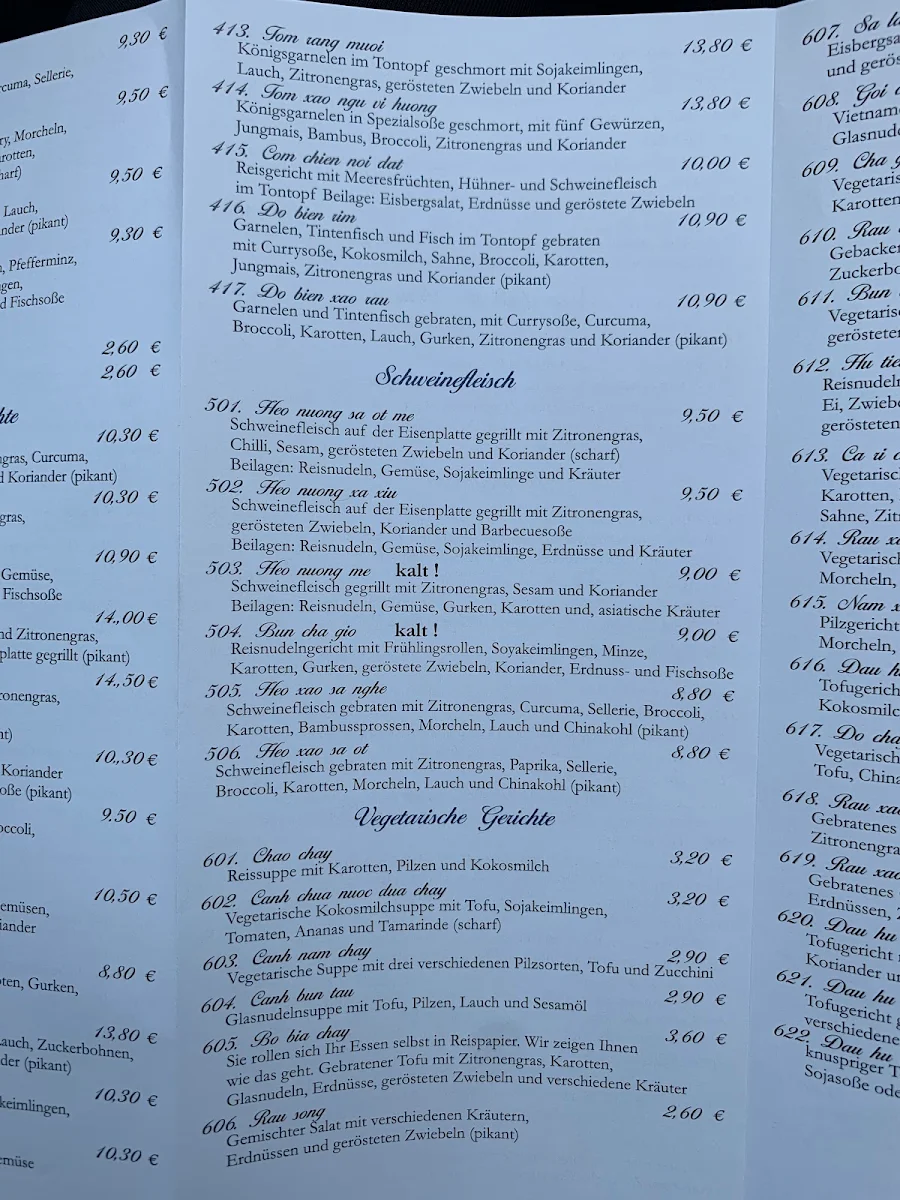 9,30 €
rcuma, Sellerie,
9,50 €
ry, Morcheln,
rotten,
harf)
9,50 €
Lauch,
nder (pikant)
9,30 €
, Pfefferminz,
gen,
d Fischsoße
2,60 €
2,60 €
hte
10,30 €
gras, Curcuma,
d Koriander (pikant)
10,30 €
gras,
10,90 €
Gemüse,
Fischsoße
14,,00 €
nd Zitronengras,
platte gegrillt (pikant)
14,,50 €
ronengras,
nt)
10,,30 €
Koriander
oße (pikant)
9.50 €
occoli,
10,50 €
emüsen,
iander
8,80 €
ten, Gurken,
13,80 €
auch, Zuckerbohnen,
der (pikant)
10,30 €
keimlingen,
10,30 €
müse
413. Tom rang muoi 13,80 €
Königsgarnelen im Tontopf geschmort mit Sojakeimlingen,
Lauch, Zitronengras, gerösteten Zwiebeln und Koriander
414. Tom xao ngu vi huong 13,80 €
Königsgarnelen in Spezialsoße geschmort, mit fünf Gewürzen,
Jungmais, Bambus, Broccoli, Zitronengras und Koriander
415. Com chien noi dat 10,00 €
Reisgericht mit Meeresfrüchten, Hühner- und Schweinefleisch
im Tontopf Beilage: Eisbergsalat, Erdnüsse und geröstete Zwiebeln
416. Do bien um 10,90 €
Garnelen, Tintenfisch und Fisch im Tontopf gebraten
mit Currysoße, Kokosmilch, Sahne, Broccoli, Karotten,
Jungmais, Zitronengras und Koriander (pikant)
417. Do bien xao rau 10,90 €
Garnelen und Tintenfisch gebraten, mit Currysoße, Curcuma,
Broccoli, Karotten, Lauch, Gurken, Zitronengras und Koriander (pikant)
Schweinefleisch
501. Heo nuong sa ot me 9,50 €
Schweinefleisch auf der Eisenplatte gegrillt mit Zitronengras,
Chilli, Sesam, gerösteten Zwiebeln und Koriander (scharf)
Beilagen: Reisnudeln, Gemüse, Sojakeimlinge und Kräuter
502. Heo nuong xa xiu 9,50 €
Schweinefleisch auf der Eisenplatte gegrillt mit Zitronengras,
gerösteten Zwiebeln, Koriander und Barbecuesoße
Beilagen: Reisnudeln, Gemüse, Sojakeimlinge, Erdnüsse und Kräuter
503. Heo nuong me kalt ! 9,00 €
Schweinefleisch gegrillt mit Zitronengras, Sesam und Koriander
Beilagen: Reisnudeln, Gemüse, Gurken, Karotten und, asiatische Kräuter
504. Bun cha gio kalt ! 9,00 €
Reisnudelngericht mit Frühlingsrollen, Soyakeimlingen, Minze,
Karotten, Gurken, geröstete Zwiebeln, Koriander, Erdnuss- und Fischsoße
505. Heo xao sa nghe 8,80 €
Schweinefleisch gebraten mit Zitronengras, Curcuma, Sellerie, Broccoli,
Karotten, Bambussprossen, Morcheln, Lauch und Chinakohl (pikant)
506. Heo xao sa ot 8,80 €
Schweinefleisch gebraten mit Zitronengras, Paprika, Sellerie,
Broccoli, Karotten, Morcheln, Lauch und Chinakohl (pikant)
Vegetarische Gerichte
601. Chao chay 3,20 €
Reissuppe mit Karotten, Pilzen und Kokosmilch
602. Canh chua nuoc dua chay 3,20 €
Vegetarische Kokosmilchsuppe mit Tofu, Sojakeimlingen,
Tomaten, Ananas und Tamarinde (scharf)
603. Canh nam chay 2,90 €
Vegetarische Suppe mit drei verschiedenen Pilzsorten, Tofu und Zucchini
604. Canh bun tau 2,90 €
Glasnudelnsuppe mit Tofu, Pilzen, Lauch und Sesamöl
605. Bo bia chay 3,60 €
Sie rollen sich Ihr Essen selbst in Reispapier. Wir zeigen Ihnen
wie das geht. Gebratener Tofu mit Zitronengras, Karotten,
Glasnudeln, Erdnüsse, gerösteten Zwiebeln und verschiedene Kräuter
606. Rau song 2,60 €
Gemischter Salat mit verschiedenen Kräutern,
Erdnüssen und gerösteten Zwiebeln (pikant)
607. Sa la
Eisbergsa
und gerös
608. Goi
Vietnam
Glasnude
609. Cha g
Vegetaris
Karotten
610. Rau
Gebacken
Zuckerbo
611. Bun
Vegetaris
gerösteter
612. Hu tie
Reisnudeln
Ei, Zwiebe
gerösteten
613. Ca ri
Vegetarisc
Karotten,
Sahne, Zit
614. Rau xa
Vegetarisch
Morcheln,
615. Nam x
Pilzgericht
Morcheln,
616. Dau h
Tofugerich
Kokosmilc
617. Do cha
Vegetarisch
Tofu, China
618. Rau xa
Gebratenes
Zitronengra
619. Rau xao
Gebratenes
Erdnüssen,
620. Dau hu
Tofugericht
Koriander u
621. Dau hu
Tofugericht g
verschiedene
622. Dau hu
knuspriger T
Sojasoße ode